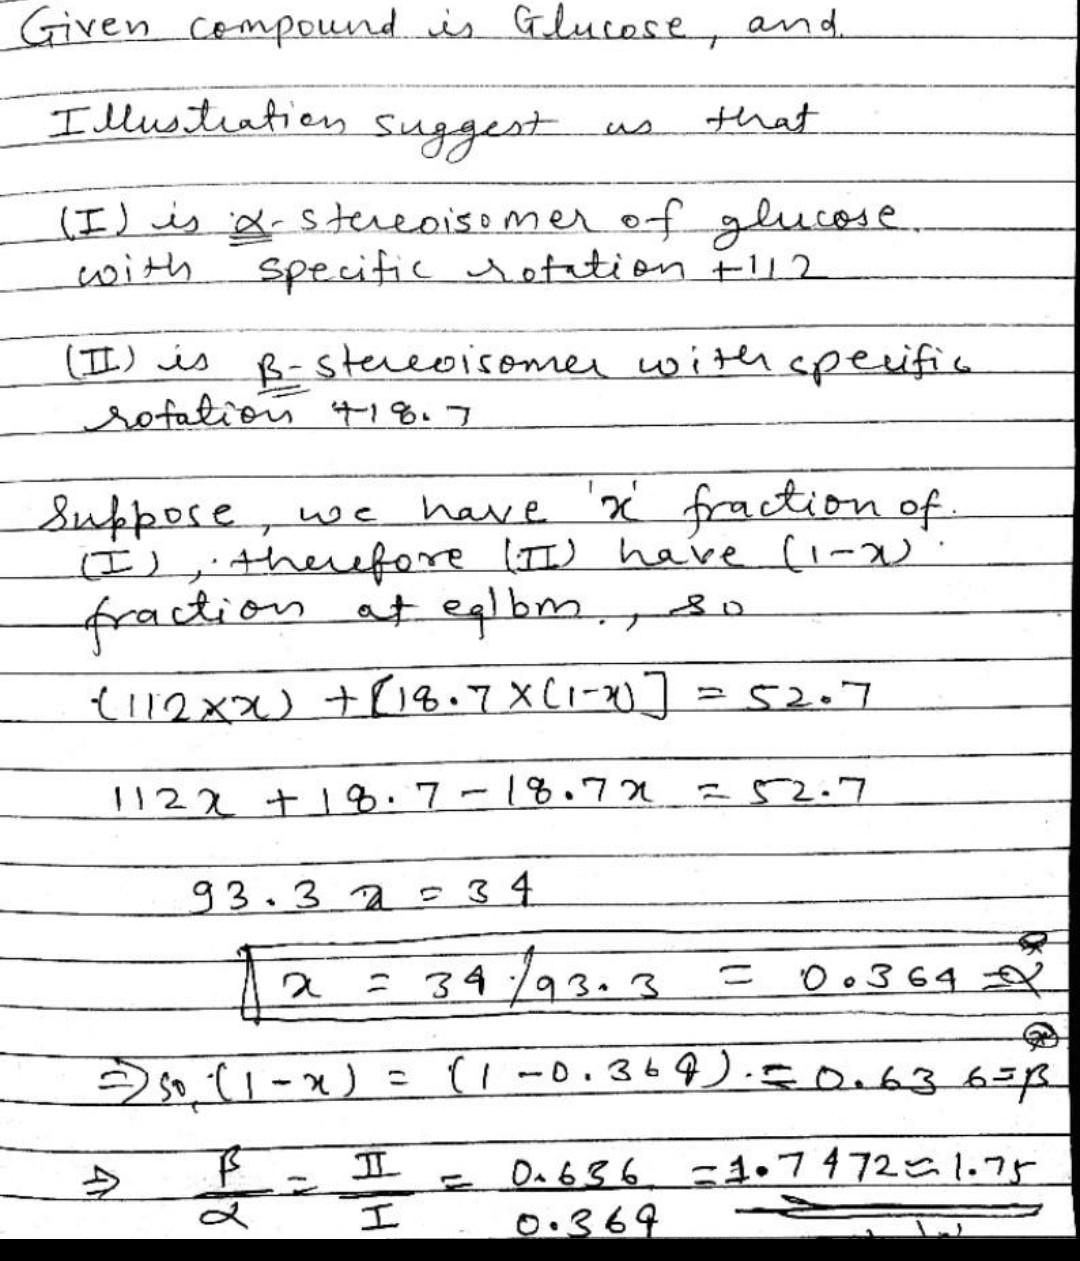 Given compound is Glucose, and
Illustration suggest us that
(I) is α-stereoisomer of glucose
with specific rotation +112
(II) is β-stereoisomer with specific
rotation +18.7
Suppose, we have 'x' fraction of
(I), therefore (II) have (1-x)
fraction at eqlbm., so
(112×x) + [18.7×(1-x)] = 52.7
112x + 18.7 - 18.7x = 52.7
93.3 x = 34
x = 34/93.3 = 0.364 = α
⇒ so, (1-x) = (1-0.364) = 0.636 = β
⇒ β/α = II/I = 0.636/0.364 = 1.7472 ≈ 1.75